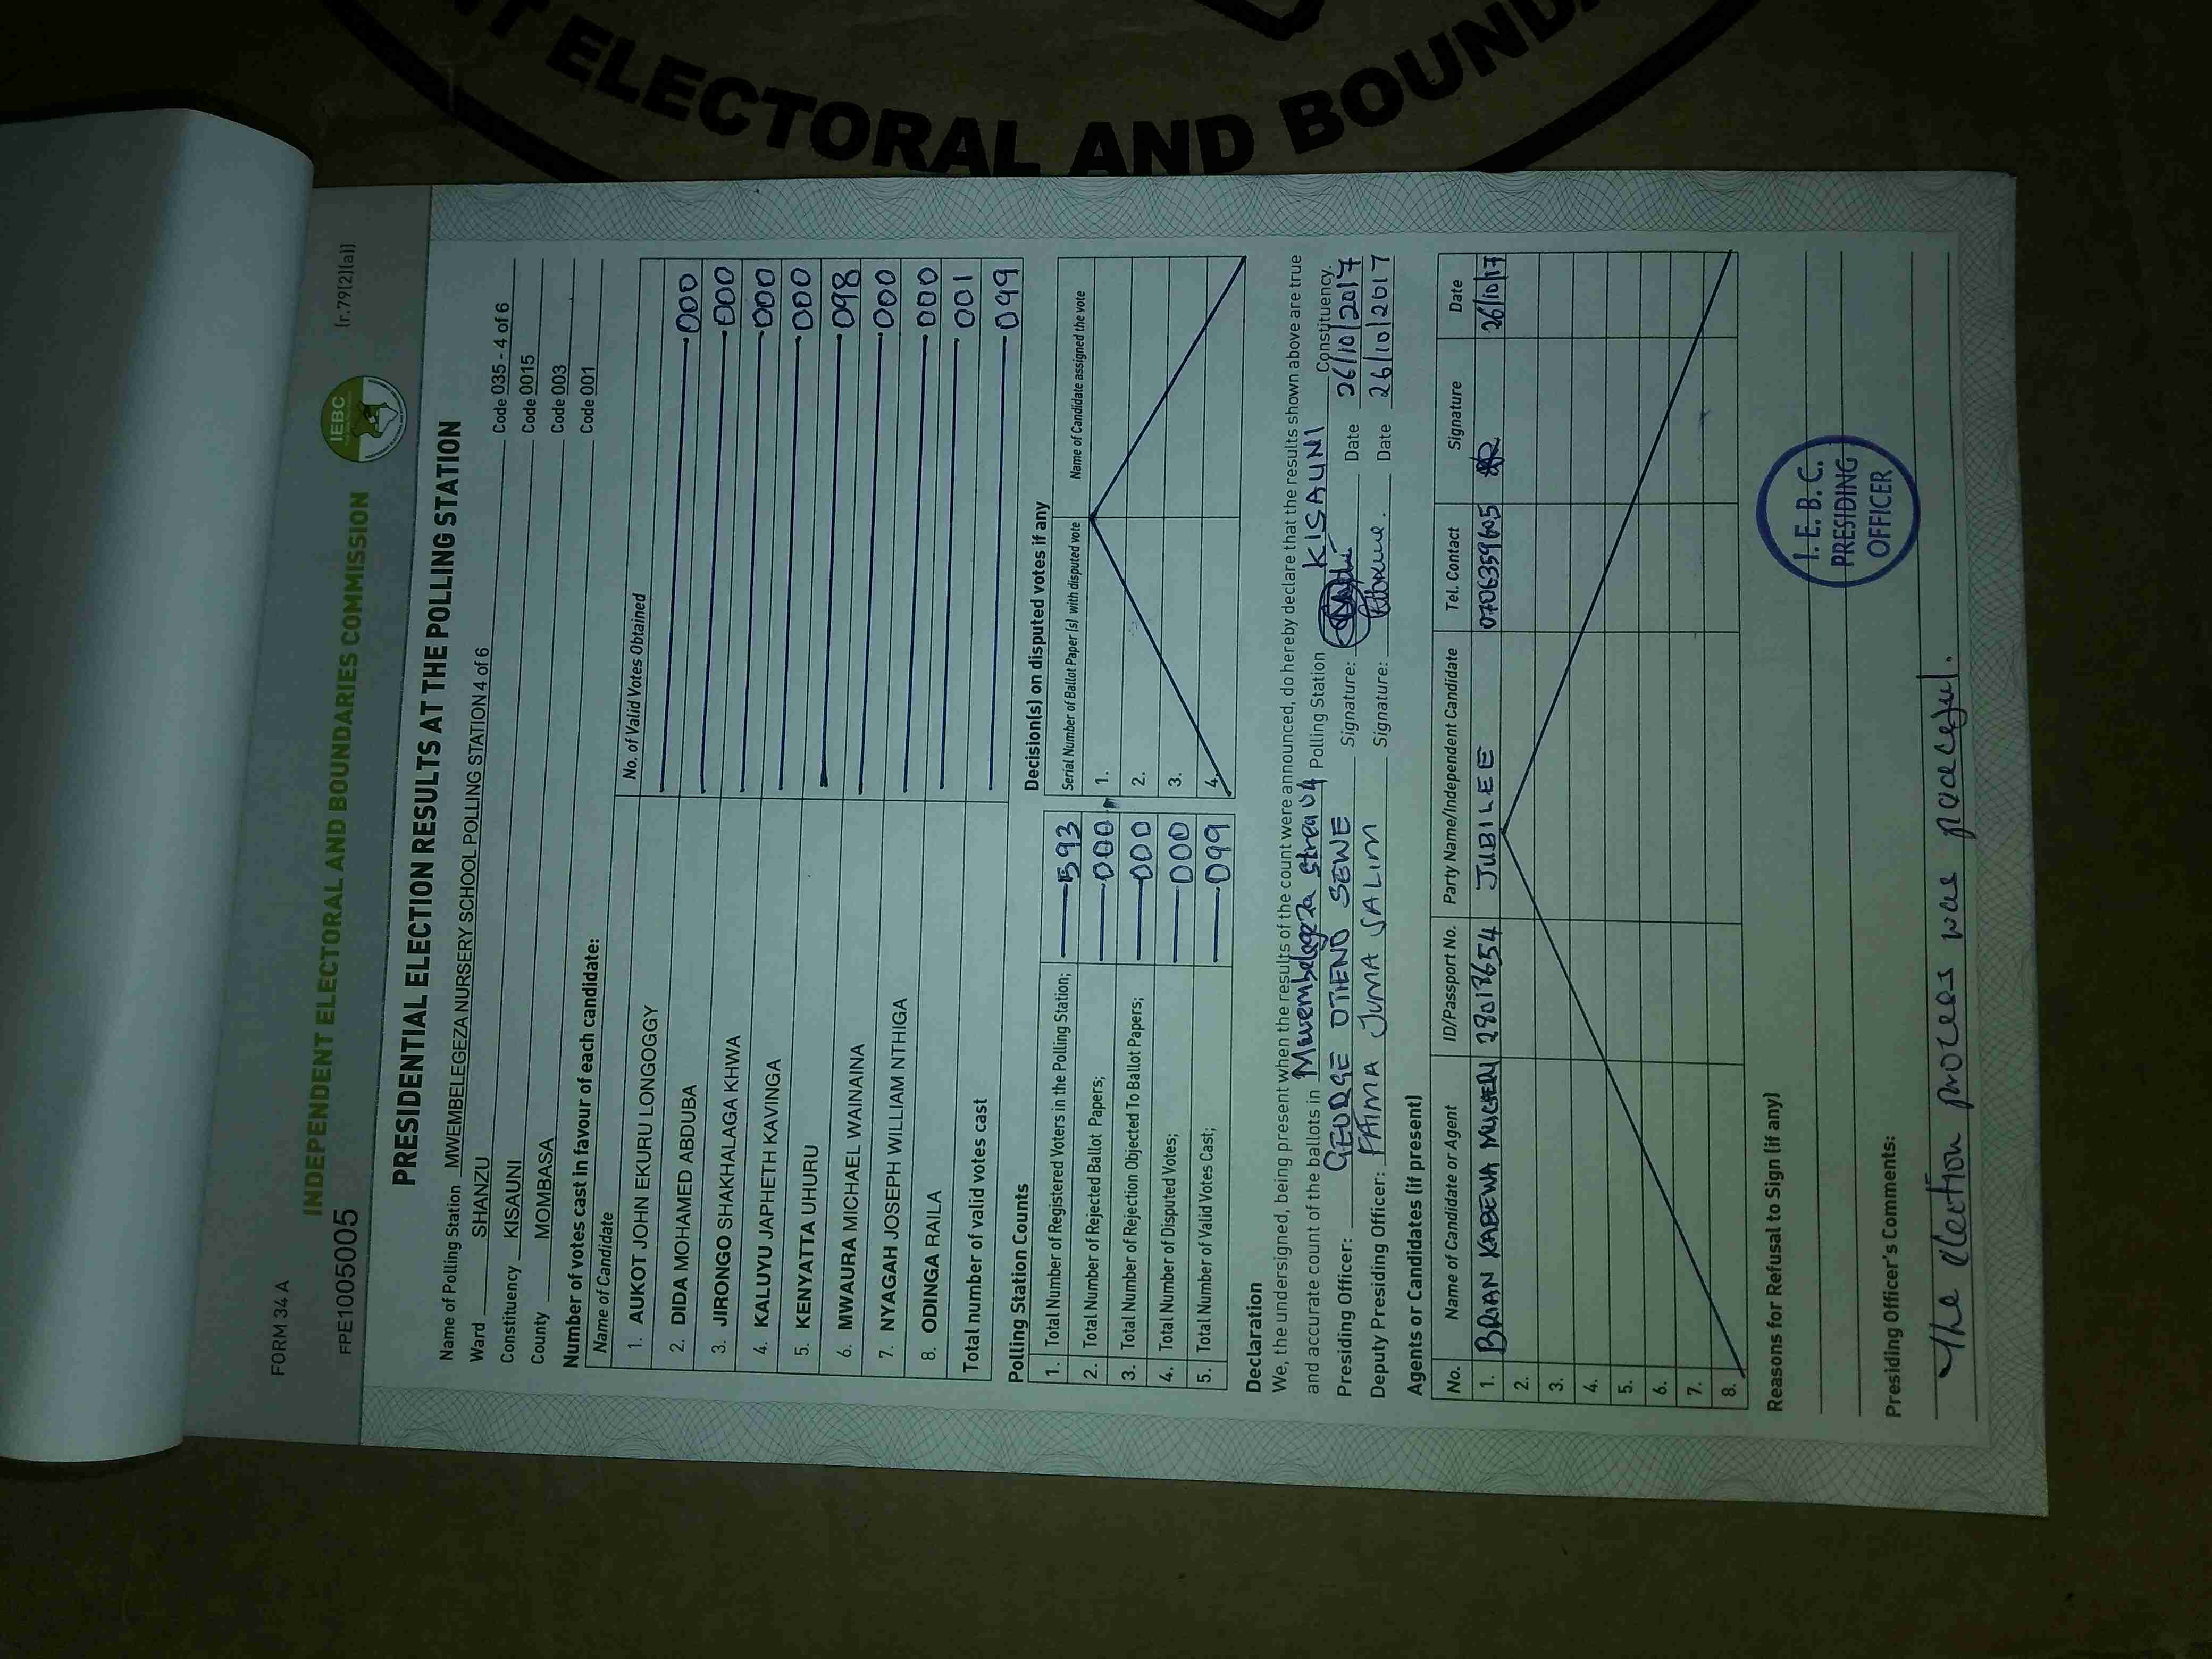 ELECTORAL AND BOUND
FORM 34 A
(r.79(2)(a))
INDEPENDENT ELECTORAL AND BOUNDARIES COMMISSION
IEBC
FPE1005005
PRESIDENTIAL ELECTION RESULTS AT THE POLLING STATION
Name of Polling Station MWEMBELEGEZA NURSERY SCHOOL POLLING STATION 4 of 6 Code 035 - 4 of 6
Ward SHANZU Code 0015
Constituency KISAUNI Code 003
County MOMBASA Code 001
Number of votes cast in favour of each candidate:
Name of Candidate No. of Valid Votes Obtained
1. AUKOT JOHN EKURU LONGOGGY 000
2. DIDA MOHAMED ABDUBA 000
3. JIRONGO SHAKHALAGA KHWA 000
4. KALUYU JAPHETH KAVINGA 000
5. KENYATTA UHURU 098
6. MWAURA MICHAEL WAINAINA 000
7. NYAGAH JOSEPH WILLIAM NTHIGA 000
8. ODINGA RAILA 001
Total number of valid votes cast 099
Polling Station Counts
1. Total Number of Registered Voters in the Polling Station; 593
2. Total Number of Rejected Ballot Papers; 000
3. Total Number of Rejection Objected To Ballot Papers; 000
4. Total Number of Disputed Votes; 000
5. Total Number of Valid Votes Cast; 099
Decision(s) on disputed votes if any
Serial Number of Ballot Paper (s) with disputed vote Name of Candidate assigned the vote
1.
2.
3.
4.
Declaration
We, the undersigned, being present when the results of the count were announced, do hereby declare that the results shown above are true
and accurate count of the ballots in Mwembelegeza Stream 04 Polling Station KISAUNI Constituency.
Presiding Officer: GEORGE OTIENO SEWE Signature: Date 26/10/2017
Deputy Presiding Officer: FATMA JUMA SALIM Signature: Date 26/10/2017
Agents or Candidates (if present)
No. Name of Candidate or Agent ID/Passport No. Party Name/Independent Candidate Tel. Contact Signature Date
1. BRIAN KABEWA 29017654 JUBILEE 0706359605 26/10/17
2.
3.
4.
5.
6.
7.
8.
Reasons for Refusal to Sign (if any)
I.E.B.C.
PRESIDING
OFFICER
Presiding Officer's Comments:
The election process was peaceful.